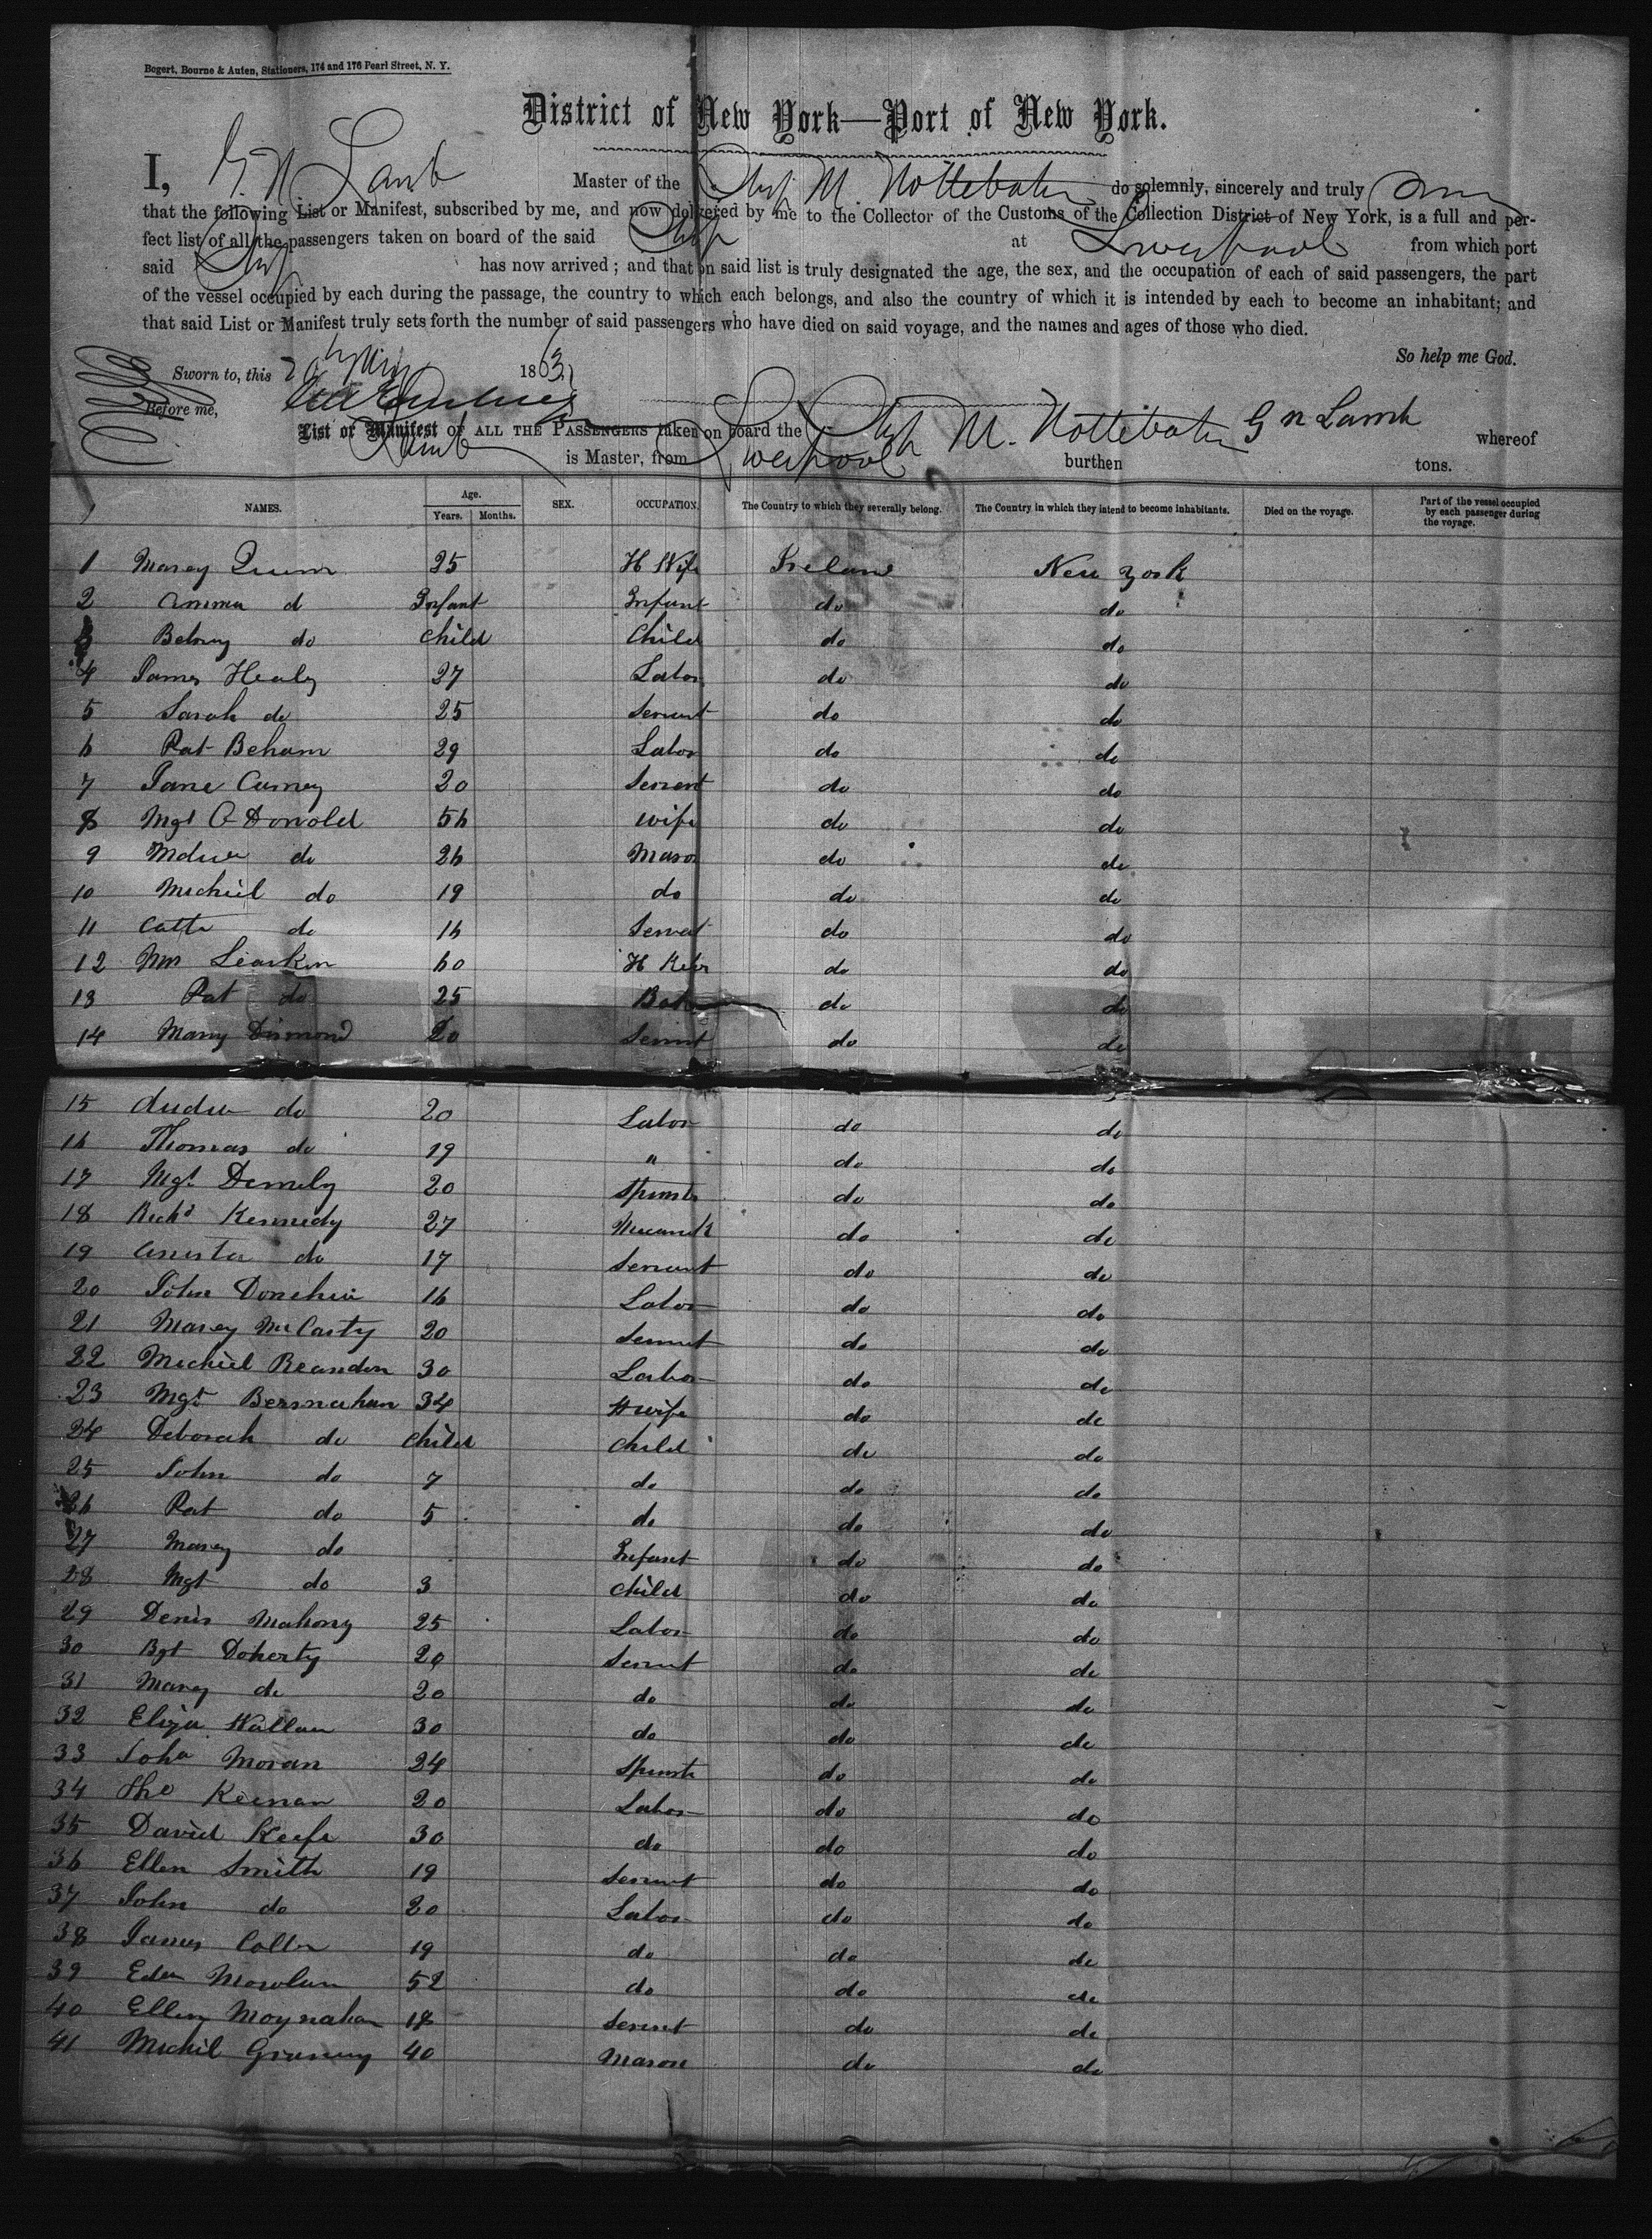 Bogert, Bourne & Auten, Stationers, 174 and 176 Pearl Street, N. Y.
District of New York—Port of New York.
I, G. N Lamb Master of the Ship M. Nottebohm do solemnly, sincerely and truly
that the following List or Manifest, subscribed by me, and now delivered by me to the Collector of the Customs of the Collection District of New York, is a full and per-
fect list of all the passengers taken on board of the said Ship at Liverpool from which port
said Ship has now arrived; and that on said list is truly designated the age, the sex, and the occupation of each of said passengers, the part
of the vessel occupied by each during the passage, the country to which each belongs, and also the country of which it is intended by each to become an inhabitant; and
that said List or Manifest truly sets forth the number of said passengers who have died on said voyage, and the names and ages of those who died.
So help me God.
Sworn to, this 1863
Before me,
List or Manifest OF ALL THE PASSENGERS taken on board the Ship M. Nottebohm G N Lamb whereof
is Master, from Liverpool burthen tons.
NAMES. Age. Years. Months. SEX. OCCUPATION. The Country to which they severally belong. The Country in which they intend to become inhabitants. Died on the voyage. Part of the vessel occupied by each passenger during the voyage.
1 Marey Quinn 25 H Wife Ireland New York
2 Amma d Infant Infant do do
3 do Child Child do do
4 James Healy 27 Labor do do
5 Sarah do 25 Servant do do
6 Pat Beham 29 Labor do do
7 Jane Curney 20 Servant do do
8 Mgt O Donold 56 Wife do do
9 do 26 Mason do do
10 Michiel do 19 do do do
11 Cath do 16 Servat do do
12 Mrs 60 H do do
13 Pat do 25 do do
14 Mary Dismond 20 Servnt do do
15 Andw do 20 Labor do do
16 Thomas do 19 " do do
17 Mgt 20 Spinste do do
18 Richd Kennedy 27 Mecanick do do
19 do 17 Servant do do
20 John Donehue 16 Labor do do
21 Marey McCarty 20 Servnt do do
22 Michiel Reandon 30 Labor do do
23 Mgt Bersnahan 34 H wife do do
24 Deborah do Child Child do do
25 John do 7 do do do
26 Pat do 5 do do do
27 Marey do Infant do do
28 Mgt do 3 Child do do
29 Denis Mahony 25 Labor do do
30 Bgt Doherty 20 Servnt do do
31 Marey do 20 do do do
32 Eliza Hallan 30 do do do
33 Joha Moran 24 Spinste do do
34 Tho Keenan 20 Labor do do
35 David Keefe 30 do do do
36 Ellen Smith 19 Servant do do
37 John do 20 Labor do do
38 James 19 do do do
39 52 do do do
40 Ellen Moynahan 18 Servnt do do
41 Michil 40 Mason do do